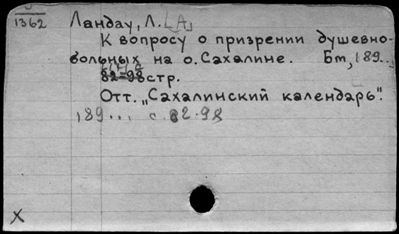 1362
Ландау, Л. [А]
К вопросу о призрении душевно-
больных на о. Сахалине. Бт, 189...
82-98 стр.
Отт. „Сахалинский календарь".
189... с. 82-98
X